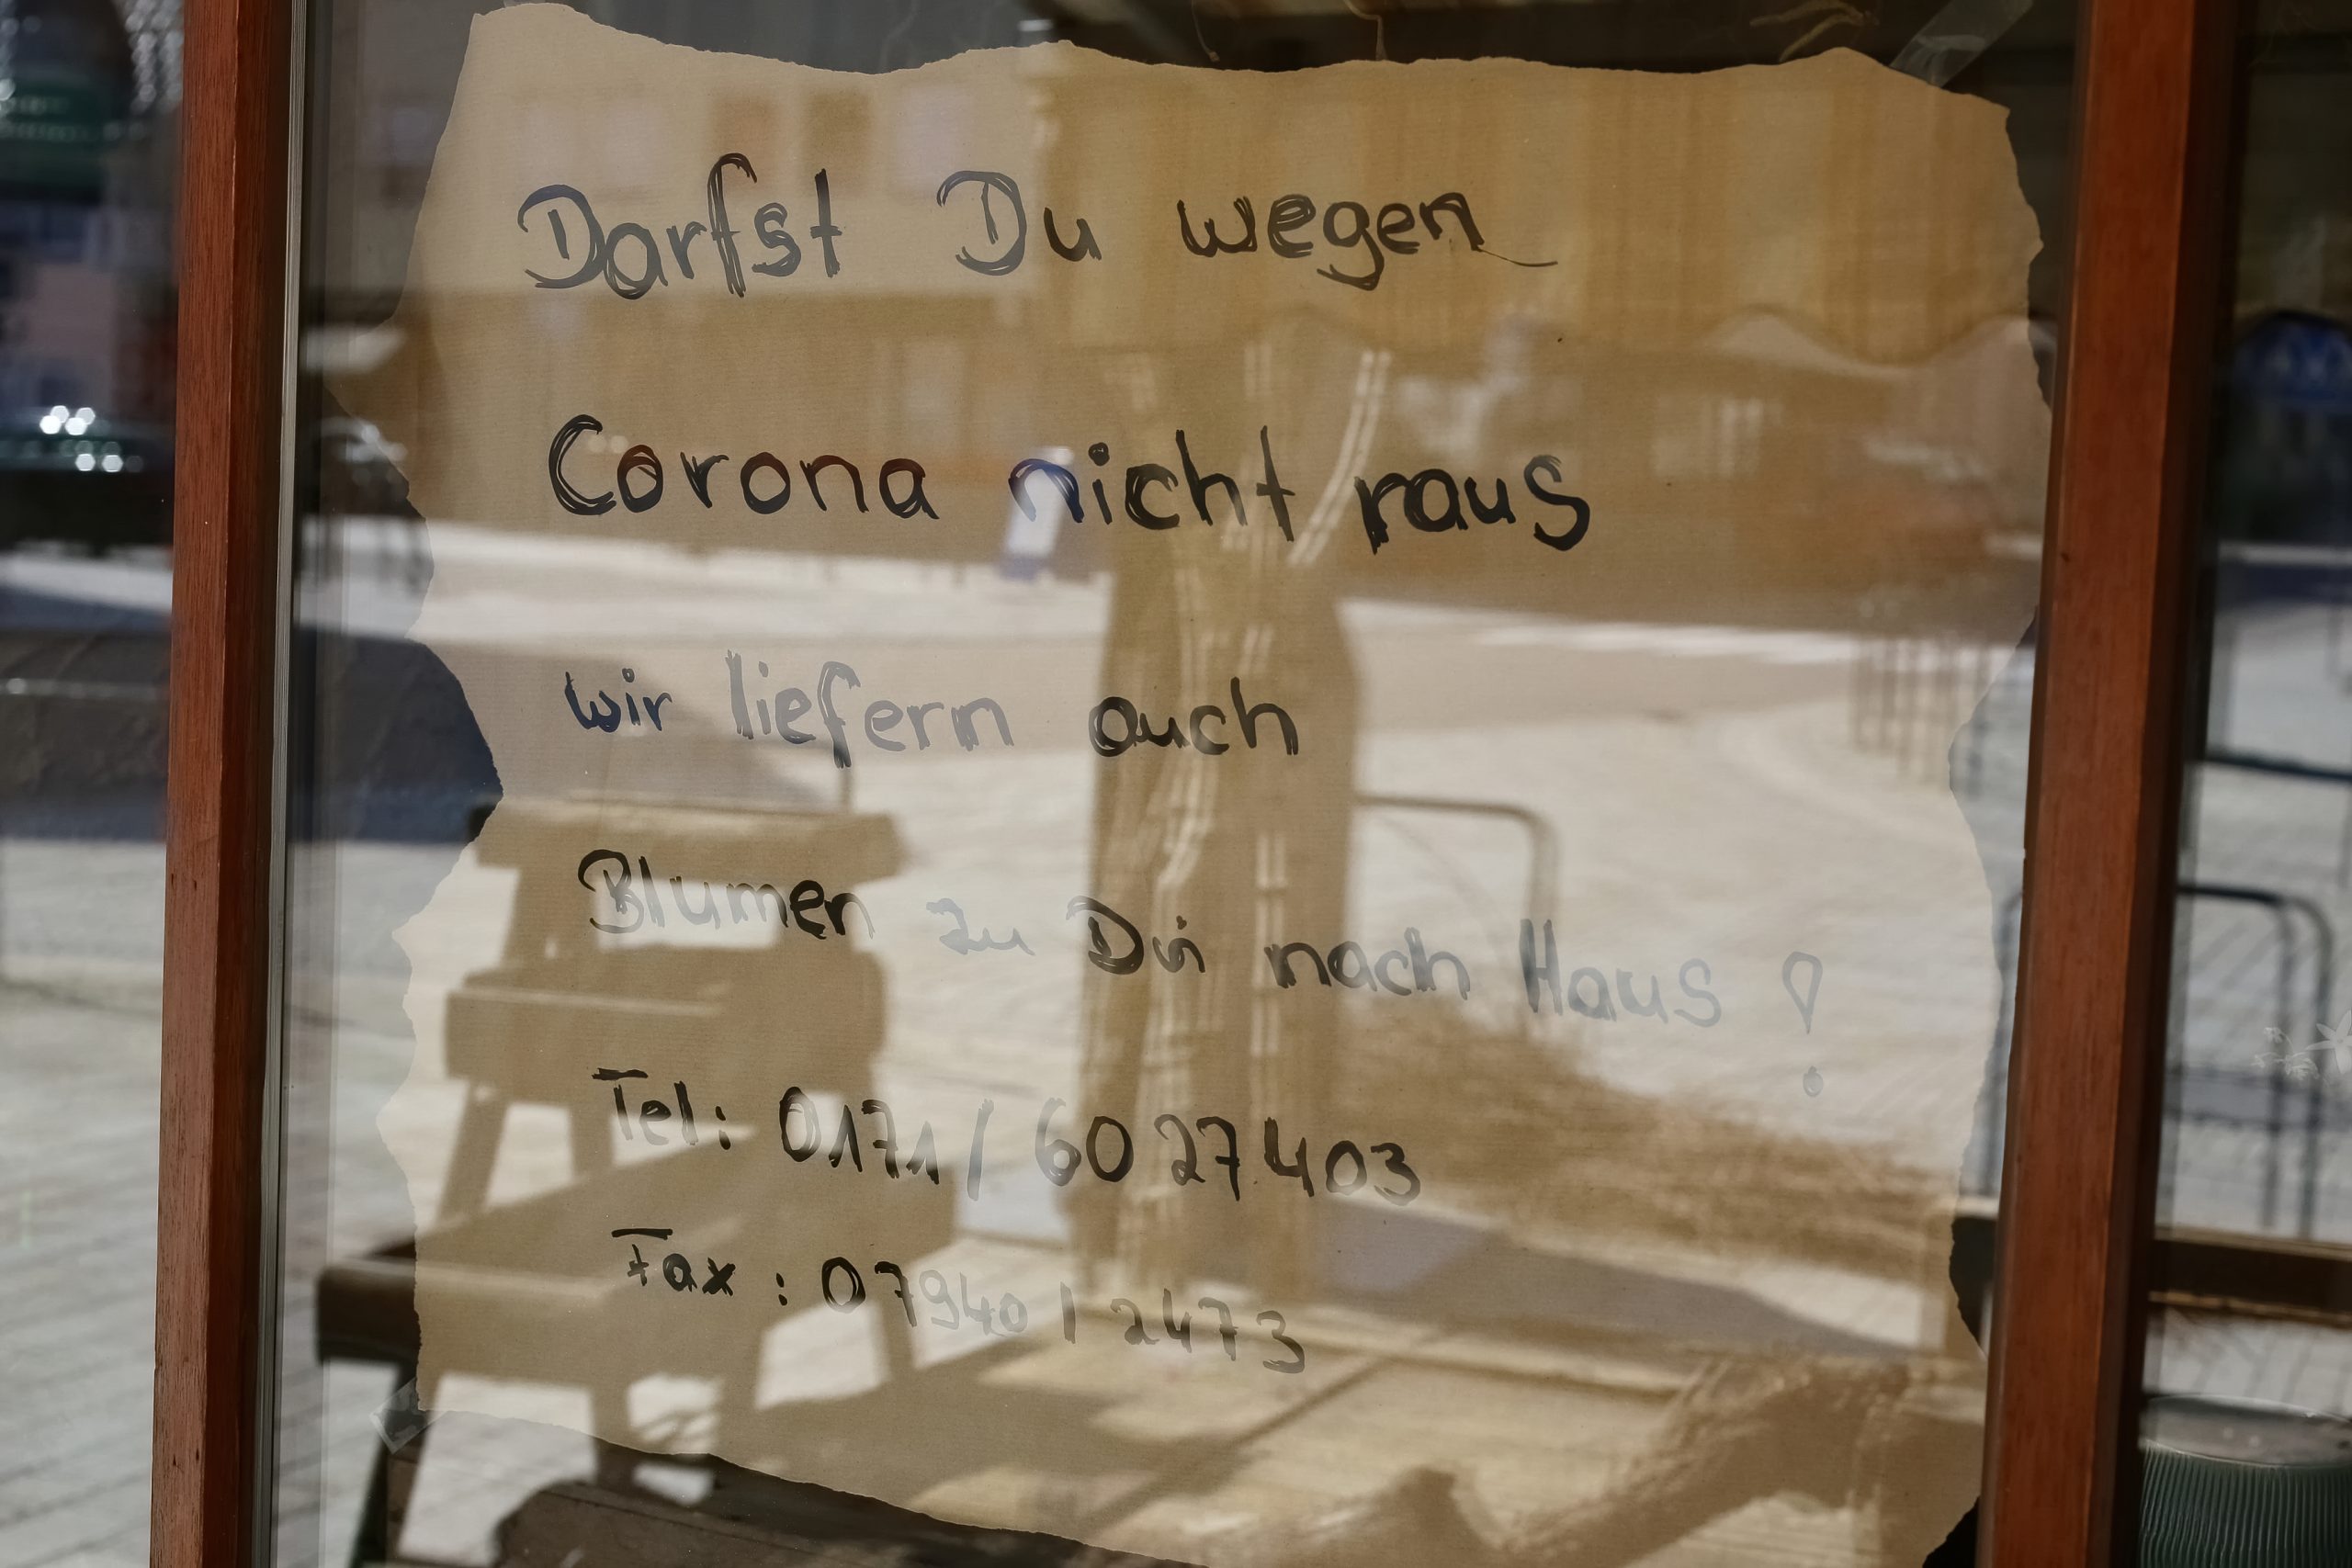 Darfst Du wegen
Corona nicht raus
wir liefern auch
Blumen zu Dir nach Haus !
Tel: 0171 / 60 27 403
Fax : 07940 / 2473